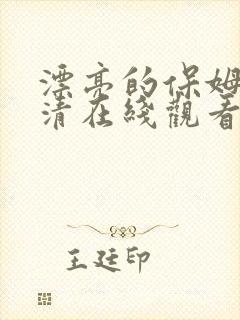 漂亮的保姆
清在綫觀看
王廷印